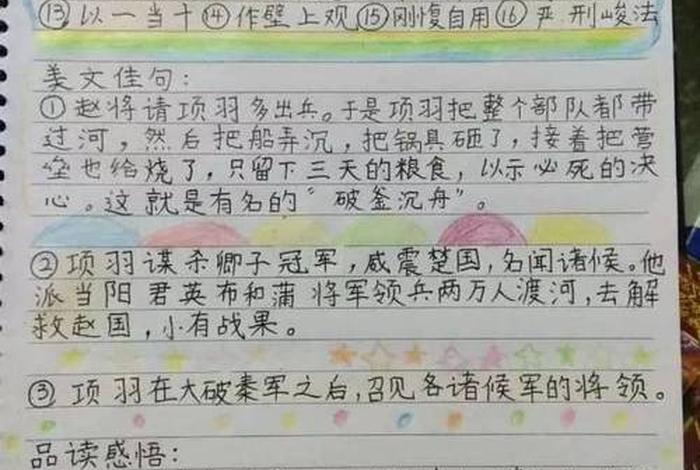 ⑬以一当十⑭作壁上观⑮刚愎自用⑯严刑峻法
美文佳句：
①赵将请项羽多出兵。于是项羽把整个部队都带
过河，然后把船弄沉，把锅具砸了，接着把营
垒也给烧了，只留下三天的粮食，以示必死的决
心。这就是有名的“破釜沉舟”。
②项羽谋杀卿子冠军，威震楚国，名闻诸候。他
派当阳君英布和蒲将军领兵两万人渡河，去解
救赵国，小有战果。
③项羽在大破秦军之后，召见各诸候军的将领。
品读感悟：